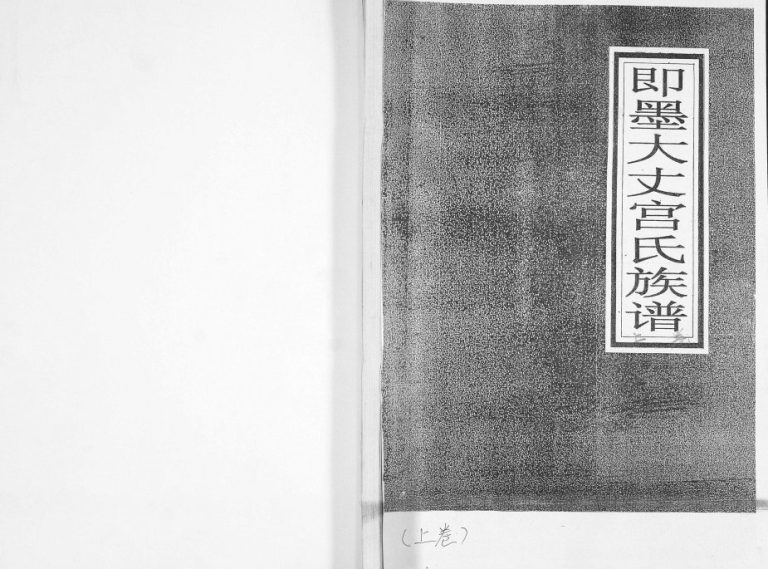 即墨大丈宫氏族谱
（上卷）